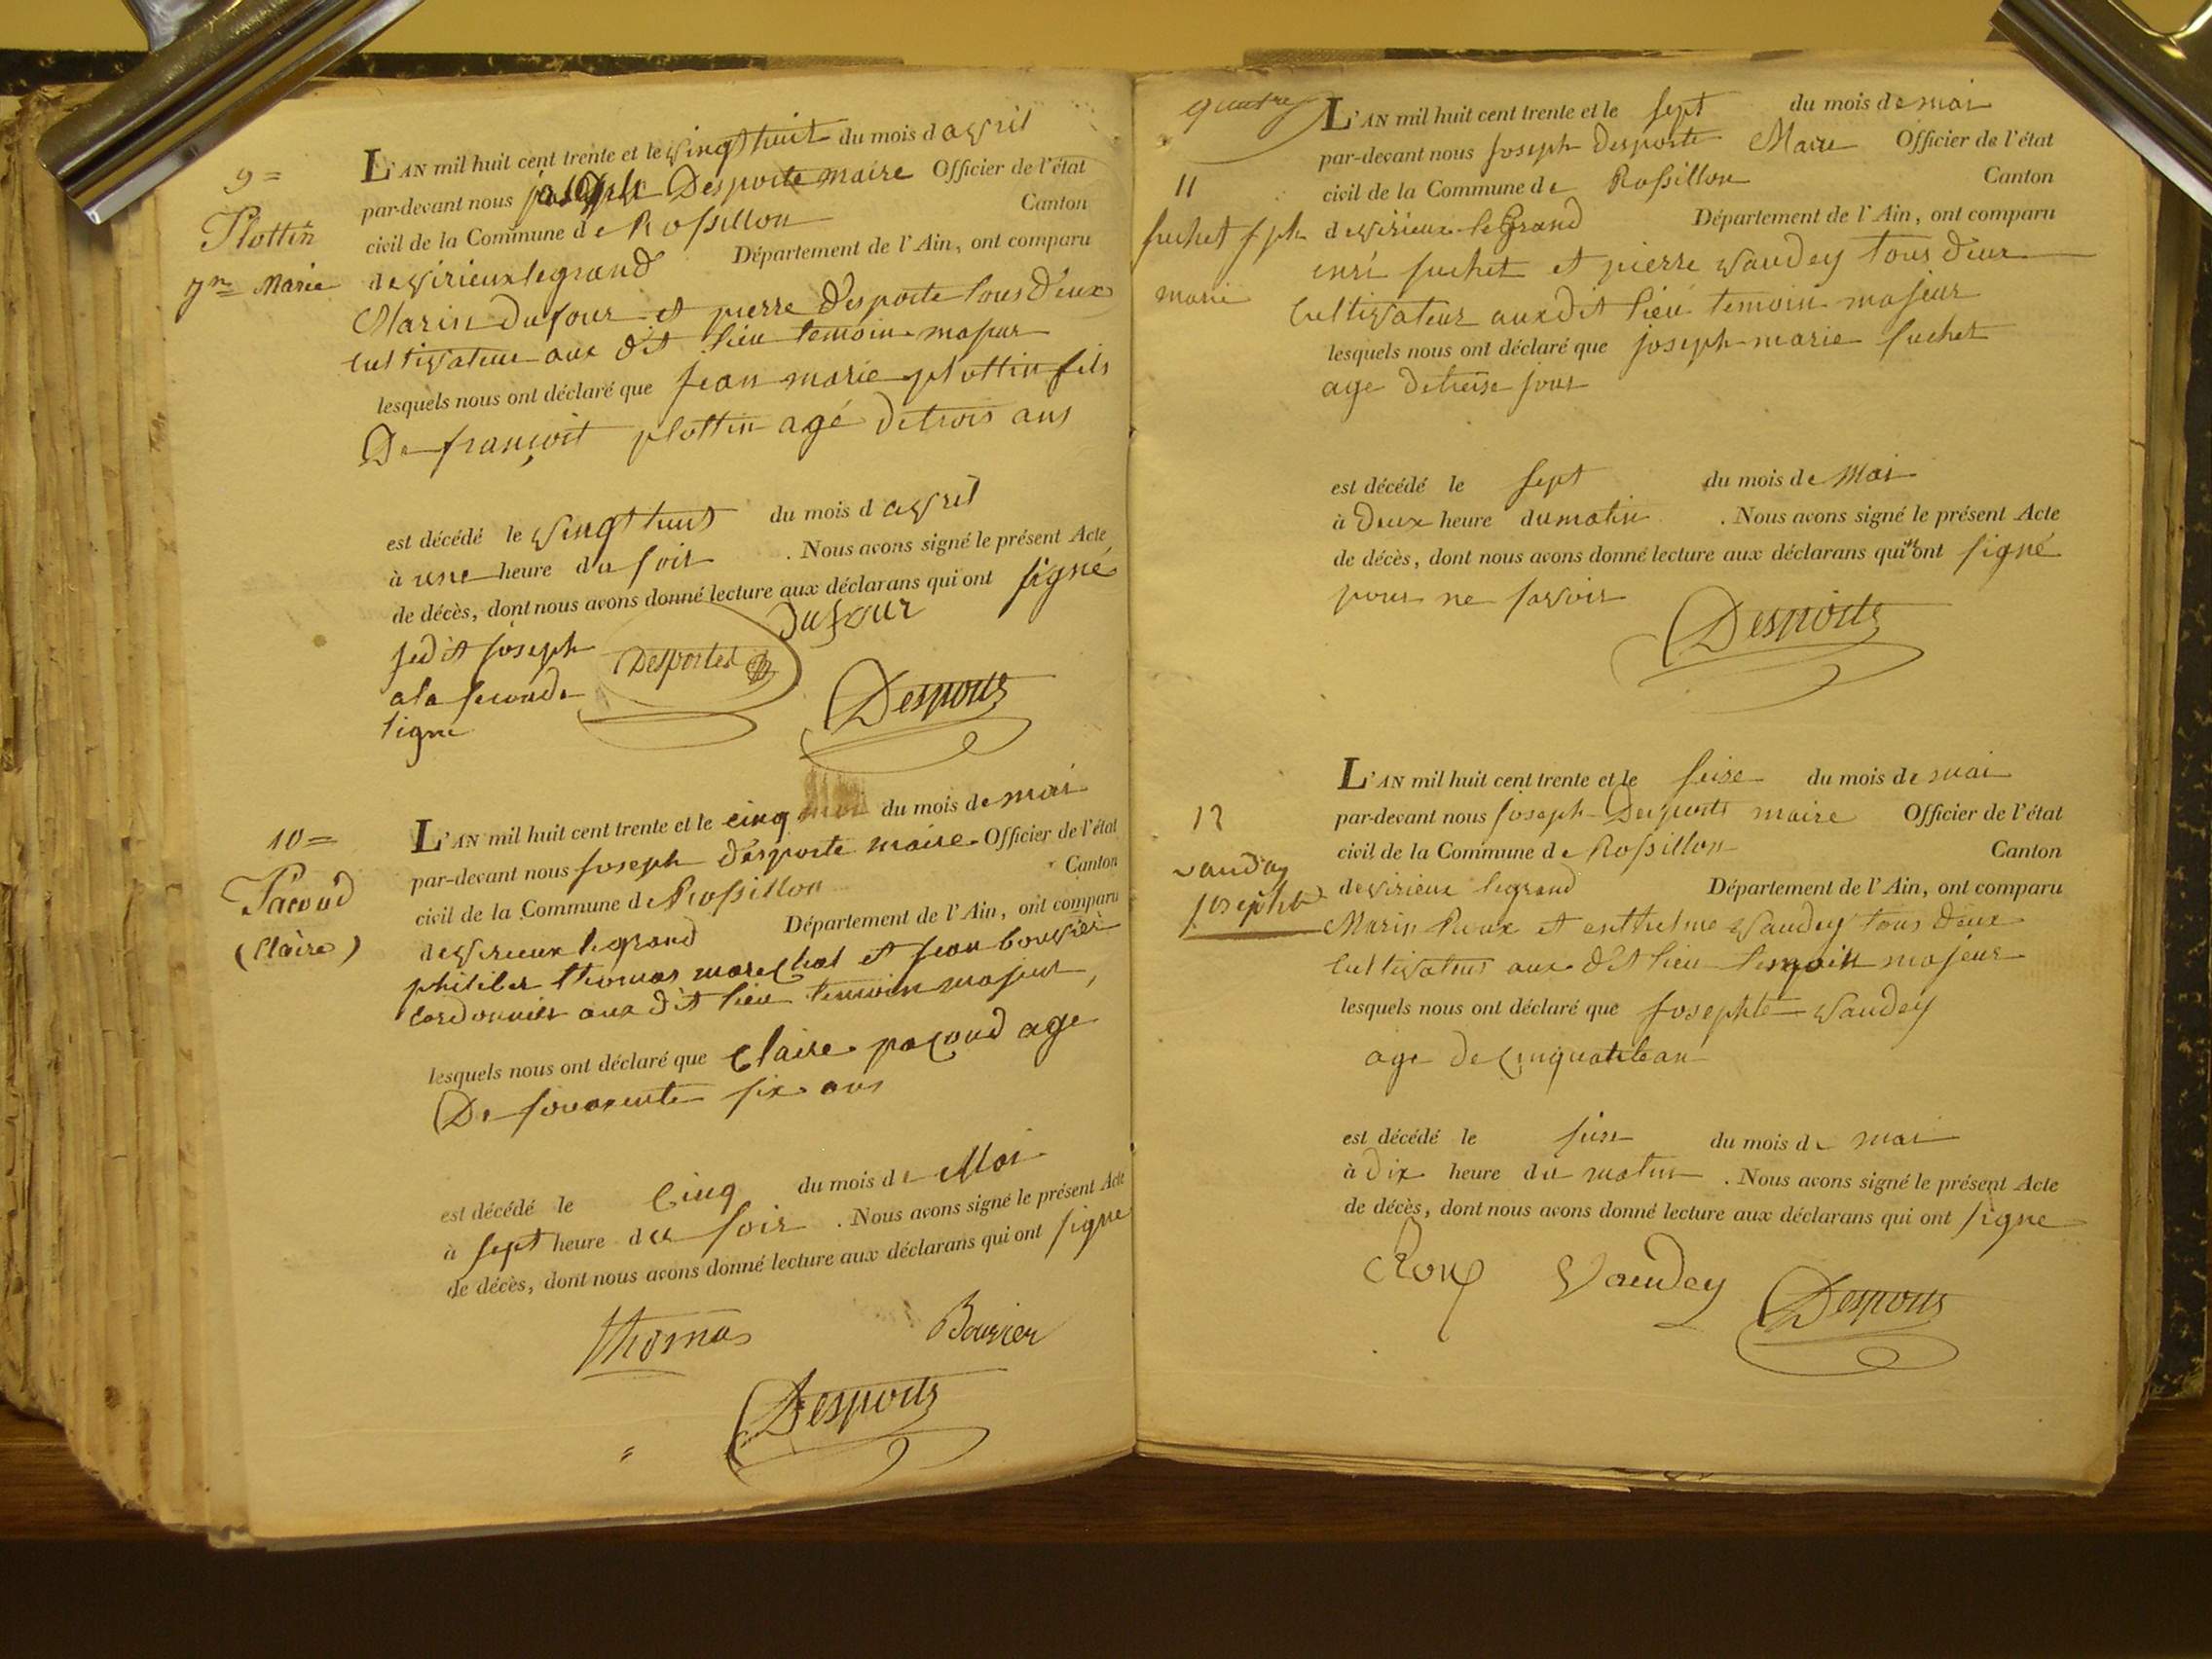 9=
Plottin
Jn= Marie
L'AN mil huit cent trente et le vingt huit du mois d avril
par-devant nous joseph Desporte maire Officier de l'état
civil de la Commune d e Rossillon Canton
de virieux le grand Département de l'Ain, ont comparu
Marin Dufour et pierre Desporte tous Deux
Cultivateur aux dit lieu temoin majeur
lesquels nous ont déclaré que jean marie plottin fils
De françoit plottin agé de trois ans
est décédé le vingt huit du mois d avril
à une heure du soir . Nous avons signé le présent Acte
de décès, dont nous avons donné lecture aux déclarans qui ont signé
Dufour
je dit joseph
Desportes
a la seconde
ligne
Desporte
10=
Pacoud
(Claire)
L'AN mil huit cent trente et le cinq du mois de mai
par-devant nous joseph desporte maire Officier de l'état
civil de la Commune d e Rossillon Canton
de virieux le grand Département de l'Ain, ont comparu
philiber thomas marechal et jean bouvier
Cordonnier aux dit lieu temoin majeur,
lesquels nous ont déclaré que Claire pacoud age
De soixante six ans
est décédé le Cinq du mois de Mai
à sept heure du soir . Nous avons signé le présent Acte
de décès, dont nous avons donné lecture aux déclarans qui ont signe
Thomas Bouvier
Desporte
quatre
11
fuchet jph
marie
L'AN mil huit cent trente et le sept du mois de mai
par-devant nous joseph Desporte Maire Officier de l'état
civil de la Commune de Rossillon Canton
de virieux le Grand Département de l'Ain, ont comparu
enri fuchet et pierre vaudey tous deux
Cultivateur aux dit lieu temoin majeur
lesquels nous ont déclaré que joseph marie fuchet
age de treise jour
est décédé le sept du mois de Mai
à Deux heure du matin . Nous avons signé le présent Acte
de décès, dont nous avons donné lecture aux déclarans qui n'ont signé
pour ne savoir
Desporte
12
vaudey
josephte
L'AN mil huit cent trente et le seise du mois de mai
par-devant nous joseph Desporte maire Officier de l'état
civil de la Commune d e Rossillon Canton
de virieux le grand Département de l'Ain, ont comparu
Marin Roux et enthelme vaudey tous deux
Cultivateur aux dit lieu temoin majeur
lesquels nous ont déclaré que josephte vaudey
age de
est décédé le seise du mois de mai
à Dix heure du matin . Nous avons signé le présent Acte
de décès, dont nous avons donné lecture aux déclarans qui ont signe
Roux Vaudey Desporte